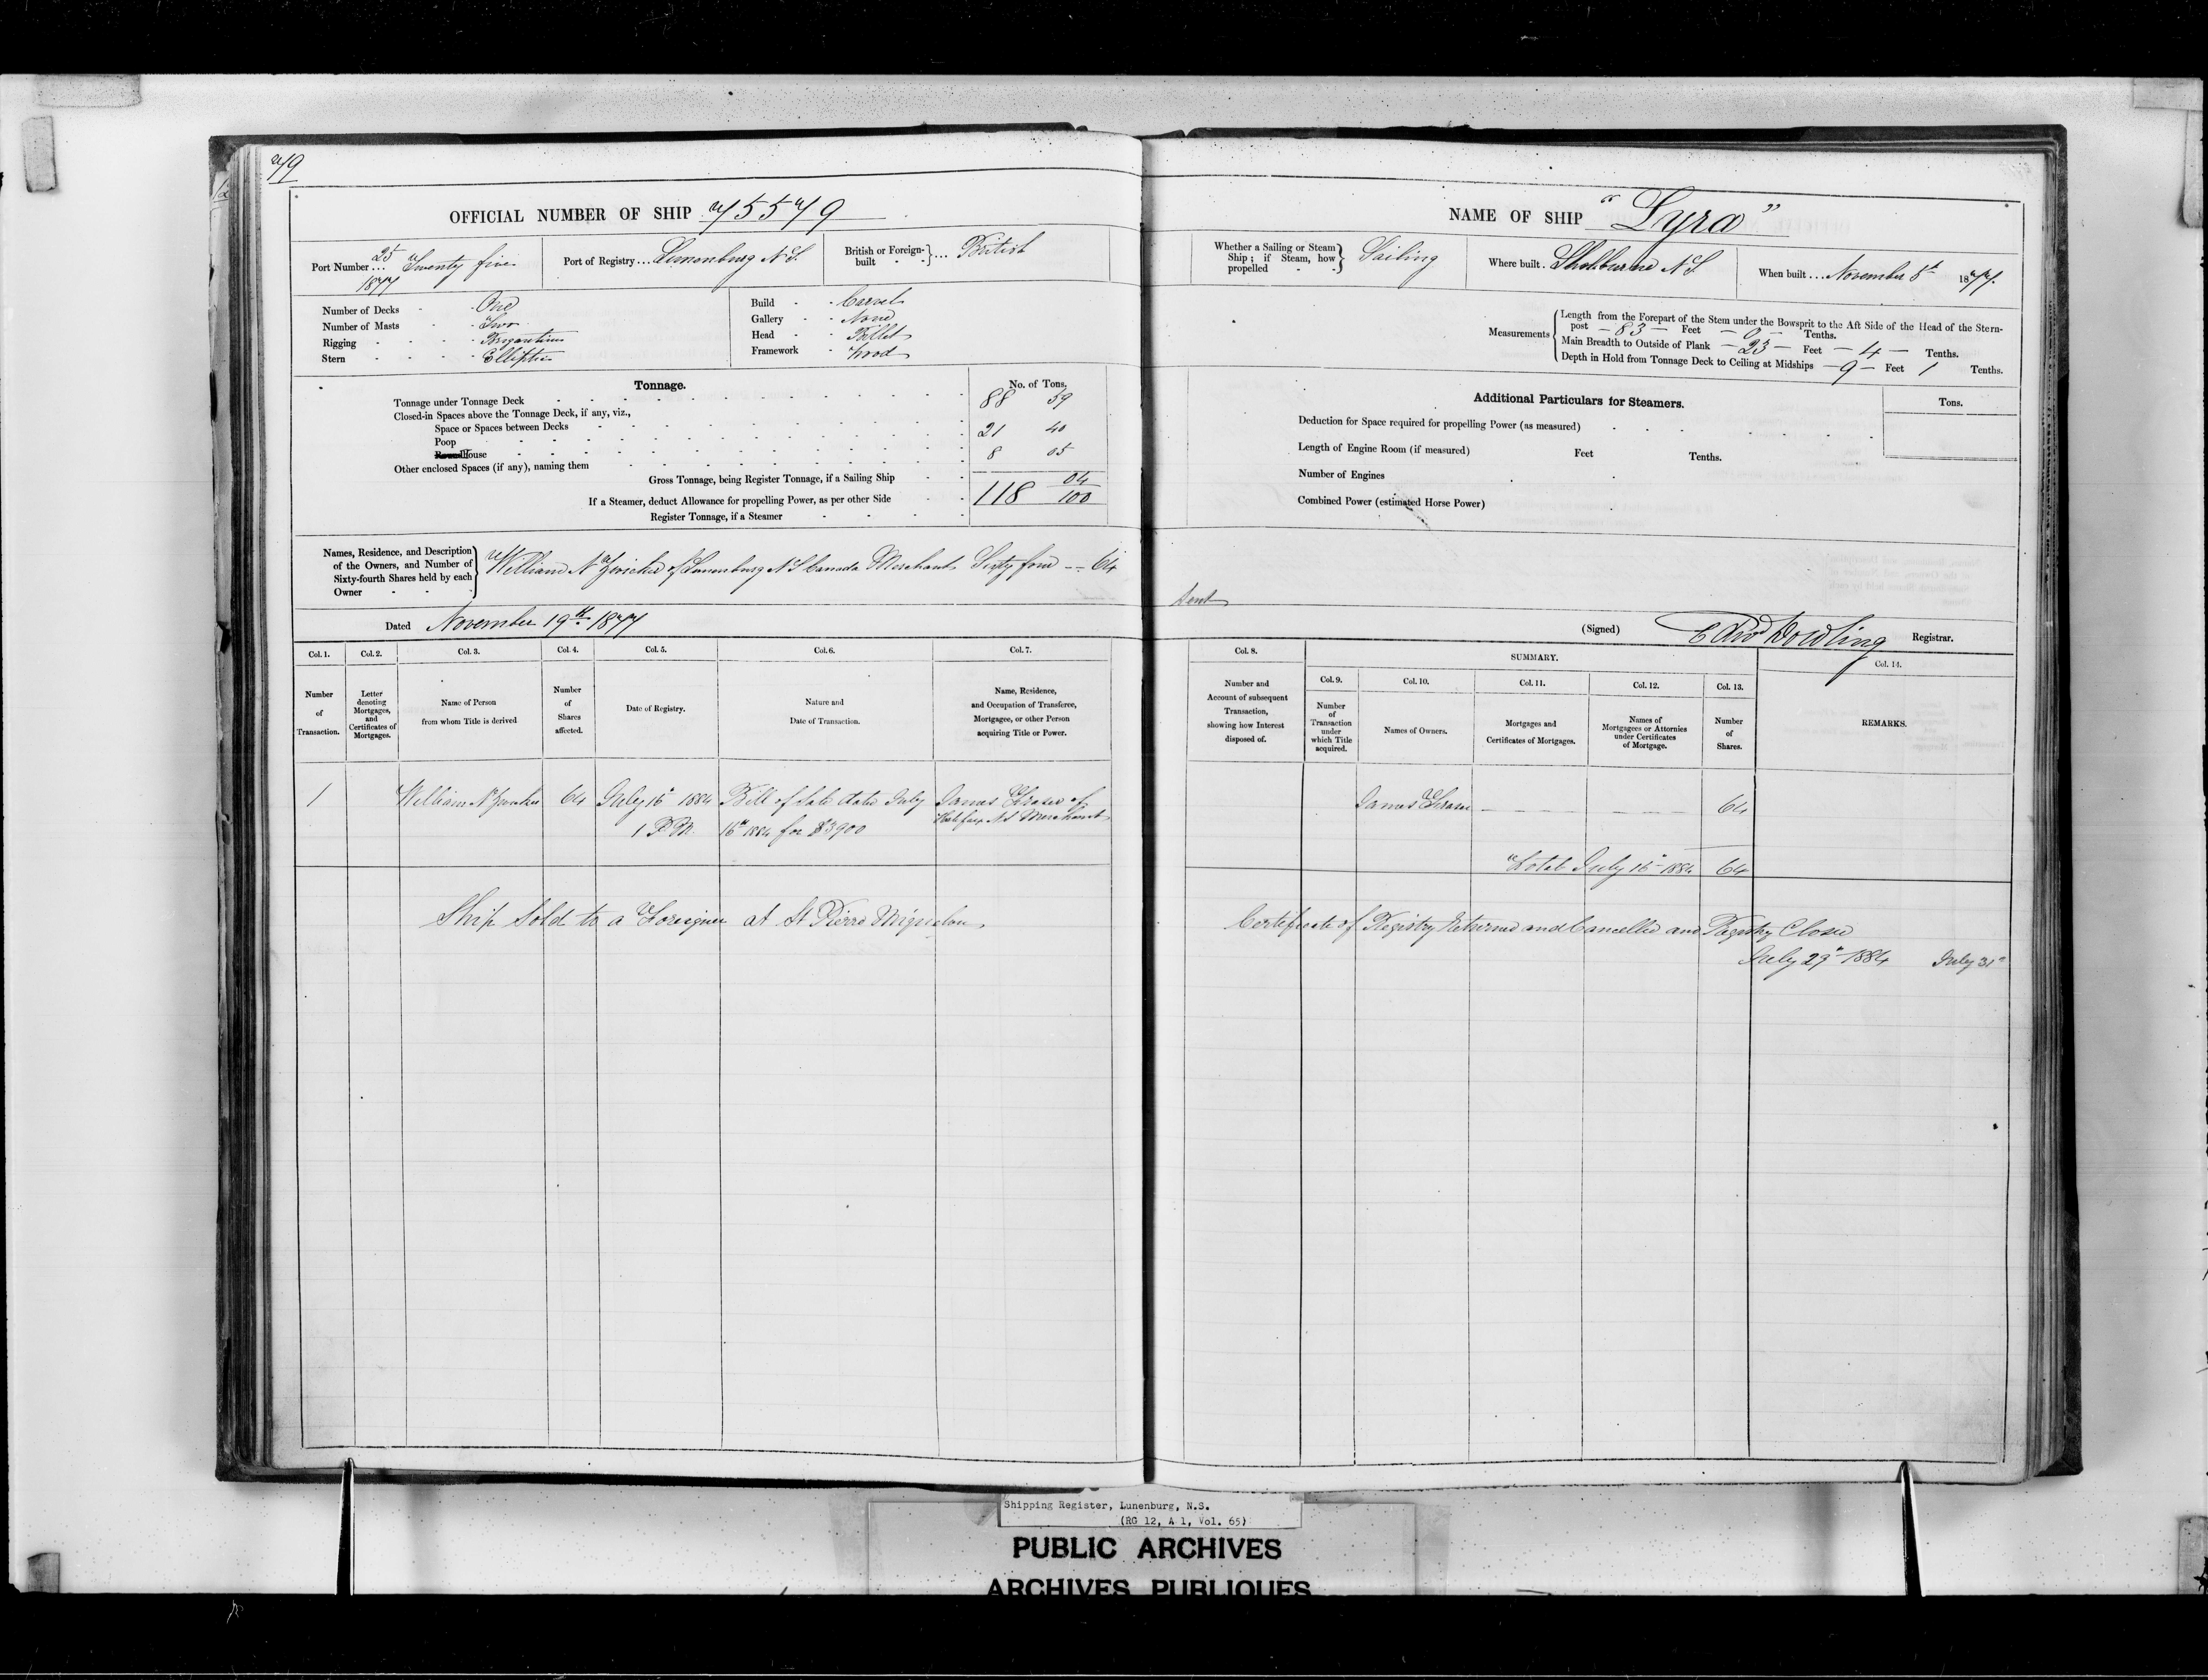 79
OFFICIAL NUMBER OF SHIP 75579
Port Number ... 25 Twenty five 1877
Port of Registry ... Lunenburg N.S.
British or Foreign-built ... British
Number of Decks - One
Number of Masts - Two
Rigging - Brigantine
Stern - Elliptic
Build - Carvel
Gallery - None
Head - Billet
Framework - Wood
Tonnage.
No. of Tons.
Tonnage under Tonnage Deck 88 59
Closed-in Spaces above the Tonnage Deck, if any, viz.,
Space or Spaces between Decks
Poop 21 40
House 8 05
Other enclosed Spaces (if any), naming them
Gross Tonnage, being Register Tonnage, if a Sailing Ship 118 04/100
If a Steamer, deduct Allowance for propelling Power, as per other Side
Register Tonnage, if a Steamer
Names, Residence, and Description of the Owners, and Number of Sixty-fourth Shares held by each Owner
William N Zwicker of Lunenburg N S Canada Merchant Sixty four -- 64
Dated November 19th 1877
Col. 1. Number of Transaction.
Col. 2. Letter denoting Mortgages, and Certificates of Mortgages.
Col. 3. Name of Person from whom Title is derived
Col. 4. Number of Shares affected.
Col. 5. Date of Registry.
Col. 6. Nature and Date of Transaction.
Col. 7. Name, Residence, and Occupation of Transferee, Mortgagee, or other Person acquiring Title or Power.
1 William N Zwicker 64 July 16th 1884 Bill of Sale date July James Fraser of
1 P.M. 16th 1884 for $3900 Halifax N.S Merchant
Ship Sold to a Foreigner at St Pierre Miquelon
NAME OF SHIP "Lyra"
Whether a Sailing or Steam Ship; if Steam, how propelled - Sailing
Where built. Shelburne N S
When built ... November 8th 1877.
Measurements
Length from the Forepart of the Stem under the Bowsprit to the Aft Side of the Head of the Stern-
post - 83 - Feet - 0 - Tenths.
Main Breadth to Outside of Plank - 23 - Feet - 4 - Tenths.
Depth in Hold from Tonnage Deck to Ceiling at Midships - 9 - Feet 1 Tenths.
Additional Particulars for Steamers.
Tons.
Deduction for Space required for propelling Power (as measured)
Length of Engine Room (if measured) Feet Tenths.
Number of Engines
Combined Power (estimated Horse Power)
Sent
(Signed) Edwd Dowling Registrar.
Col. 8. Number and Account of subsequent Transaction, showing how Interest disposed of.
SUMMARY.
Col. 9. Number of Transaction under which Title acquired.
Col. 10. Names of Owners.
Col. 11. Mortgages and Certificates of Mortgages.
Col. 12. Names of Mortgagees or Attornies under Certificates of Mortgage.
Col. 13. Number of Shares.
Col. 14. REMARKS.
James Fraser - - - - 64
Total July 16th 1884 64
Certificate of Registry Returned and Cancelled and Registry Closed
July 29th 1884 July 31st
Shipping Register, Lunenburg, N.S.
(RG 12, A 1, Vol. 65)
PUBLIC ARCHIVES
ARCHIVES PUBLIQUES